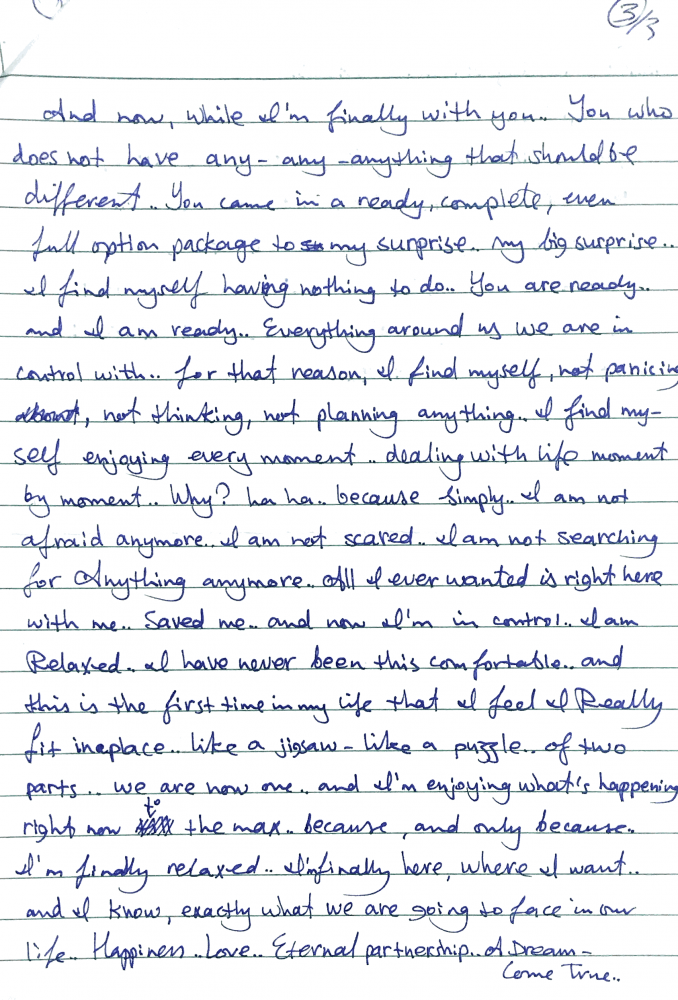 3/3
And now, while I'm finally with you.. You who
does not have any- any -anything that should be
different.. You came in a ready, complete, even
full option package to my surprise.. my big surprise..
I find myself having nothing to do.. You are ready..
and I am ready.. Everything around us we are in
control with.. for that reason, I find myself, not panicing
about, not thinking, not planning anything.. I find my-
self enjoying every moment .. dealing with life moment
by moment.. Why? ha ha.. because simply.. I am not
afraid anymore.. I am not scared.. I am not searching
for Anything anymore.. All I ever wanted is right here
with me.. Saved me.. and now I'm in control.. I am
Relaxed.. I have never been this comfortable.. and
this is the first time in my life that I feel I Really
fit inaplace.. like a jigsaw - like a puzzle.. of two
parts .. we are now one.. and I'm enjoying what's happening
right now to the max.. because, and only because..
I'm finally relaxed.. I'm finally here, where I want..
and I know, exactly what we are going to face in our
life.. Happiness ..Love.. Eternal partnership.. A Dream-
Come True..